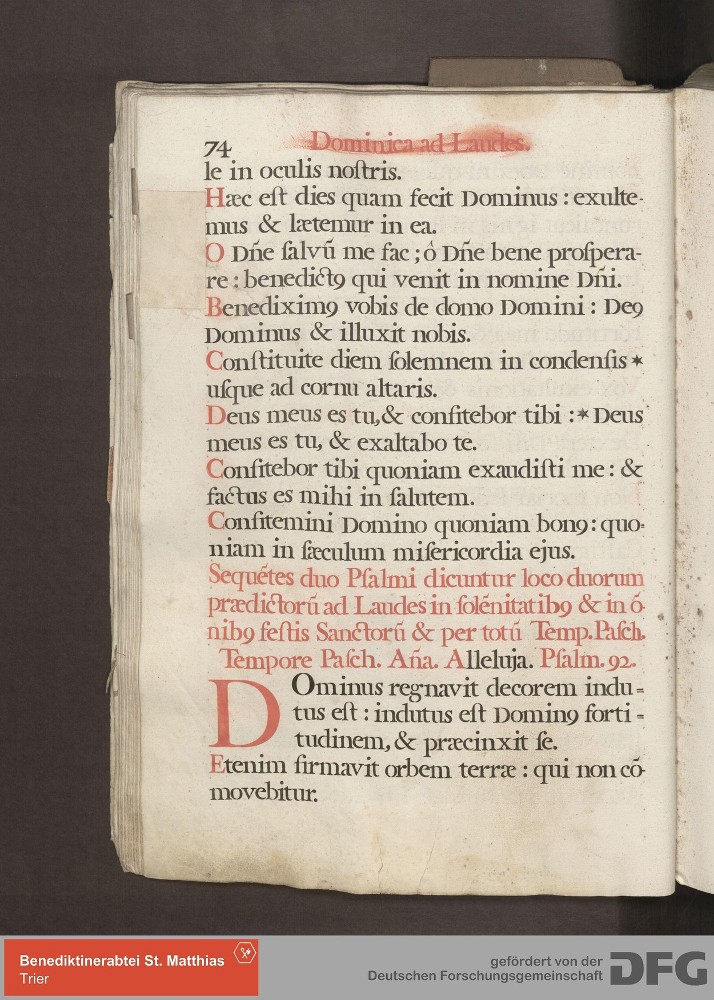 74 Dominica ad Laudes.
le in oculis noſtris.
Hæc eſt dies quam fecit Dominus : exulte-
mus & lætemur in ea.
O Dn̄e ſalvū me fac ; ô Dn̄e bene proſpera-
re : benedictꝯ qui venit in nomine Dn̄i.
Benediximꝯ vobis de domo Domini : Deꝯ
Dominus & illuxit nobis.
Conſtituite diem ſolemnem in condenſis *
uſque ad cornu altaris.
Deus meus es tu, & confitebor tibi : * Deus
meus es tu, & exaltabo te.
Confitebor tibi quoniam exaudiſti me : &
factus es mihi in ſalutem.
Confitemini Domino quoniam bonꝯ : quo=
niam in ſæculum miſericordia ejus.
Sequētes duo Pſalmi dicuntur loco duorum
prædictorū ad Laudes in ſolēnitatibꝯ & in ō-
nibꝯ feſtis Sanctorū & per totū Temp. Paſch.
Tempore Paſch. Añа. Alleluja. Pſalm. 92.
Dominus regnavit decorem indu=
tus eſt : indutus eſt Dominꝯ forti=
tudinem, & præcinxit ſe.
Etenim firmavit orbem terræ : qui non cō-
movebitur.
Benediktinerabtei St. Matthias
Trier
gefördert von der
Deutschen Forschungsgemeinschaft DFG